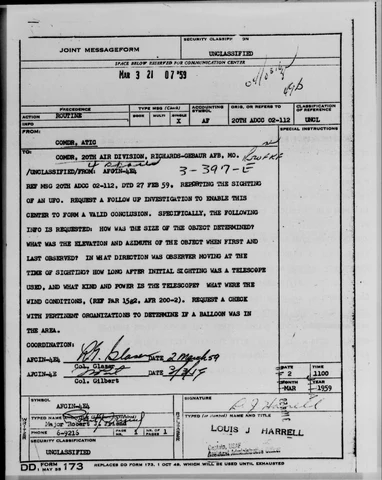 JOINT MESSAGEFORM
SECURITY CLASSIFICATION
UNCLASSIFIED
SPACE BELOW RESERVED FOR COMMUNICATION CENTER
MAR 3 21 07 '59
PRECEDENCE
TYPE MSG (Check)
ACCOUNTING SYMBOL
ORIG. OR REFERS TO
CLASSIFICATION OF REFERENCE
ACTION ROUTINE
BOOK MULTI SINGLE
X AF 20TH ADCC 02-112 UNCL
INFO
FROM:
SPECIAL INSTRUCTIONS
COMDR, ATIC
TO:
COMDR, 20TH AIR DIVISION, RICHARDS-GEBAUR AFB, MO.
/UNCLASSIFIED/FROM: AFCIN-4E4 3-397-E
REF MSG 20TH ADCC 02-112, DTD 27 FEB 59, REPORTING THE SIGHTING
OF AN UFO. REQUEST A FOLLOW UP INVESTIGATION TO ENABLE THIS
CENTER TO FORM A VALID CONCLUSION. SPECIFICALLY, THE FOLLOWING
INFO IS REQUESTED: HOW WAS THE SIZE OF THE OBJECT DETERMINED?
WHAT WAS THE ELEVATION AND AZIMUTH OF THE OBJECT WHEN FIRST AND
LAST OBSERVED? IN WHAT DIRECTION WAS OBSERVER MOVING AT THE
TIME OF SIGHTING? HOW LONG AFTER INITIAL SIGHTING WAS A TELESCOPE
USED, AND WHAT KIND AND POWER IS THE TELESCOPE? WHAT WERE THE
WIND CONDITIONS, (REF PAR 15g2, AFR 200-2). REQUEST A CHECK
WITH PERTINENT ORGANIZATIONS TO DETERMINE IF A BALLOON WAS IN
THE AREA.
COORDINATION:
AFCIN-4E4 DATE 2 March 59
Col. Glaser
AFCIN-4E DATE 3/3/59
Col. Gilbert
DATE TIME
2 1100
MONTH YEAR
MAR 1959
SYMBOL
AFCIN-4E4
SIGNATURE
TYPED NAME
Major Robert J. Friend
TYPED (or stamped) NAME AND TITLE
PHONE 6-9216 PAGE NR. 1 NR. OF PAGES 1
LOUIS J HARRELL
SECURITY CLASSIFICATION
UNCLASSIFIED
DD FORM 173 REPLACES DD FORM 173, 1 OCT 49, WHICH WILL BE USED UNTIL EXHAUSTED